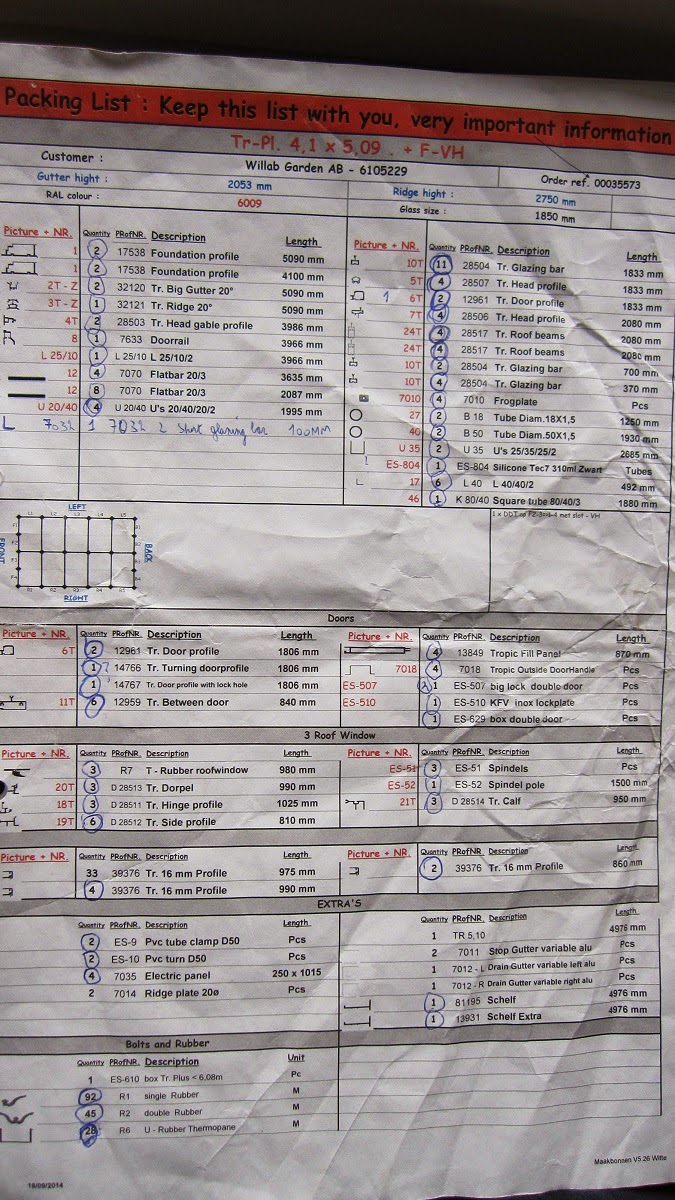 Packing List : Keep this list with you, very important information
Tr-Pl. 4,1 x 5,09 . + F-VH
Customer : Willab Garden AB - 6105229 Order ref. 00035573
Gutter hight : 2053 mm Ridge hight : 2750 mm
RAL colour : 6009 Glass size : 1850 mm
Picture + NR. Quantity PRofNR. Description Length
1 2 17538 Foundation profile 5090 mm
1 2 17538 Foundation profile 4100 mm
2T - Z 2 32120 Tr. Big Gutter 20° 5090 mm
3T - Z 1 32121 Tr. Ridge 20° 5090 mm
4T 2 28503 Tr. Head gable profile 3986 mm
8 1 7633 Doorrail 3966 mm
L 25/10 1 L 25/10 L 25/10/2 3966 mm
12 4 7070 Flatbar 20/3 3635 mm
12 8 7070 Flatbar 20/3 2087 mm
U 20/40 4 U 20/40 U's 20/40/20/2 1995 mm
L 7032 1 7032 2 Short glazing bar 100MM
Picture + NR. Quantity PRofNR. Description Length
10T 11 28504 Tr. Glazing bar 1833 mm
5T 4 28507 Tr. Head profile 1833 mm
1 6T 2 12961 Tr. Door profile 1833 mm
7T 4 28506 Tr. Head profile 2080 mm
24T 4 28517 Tr. Roof beams 2080 mm
24T 4 28517 Tr. Roof beams 2080 mm
10T 2 28504 Tr. Glazing bar 700 mm
10T 4 28504 Tr. Glazing bar 370 mm
7010 4 7010 Frogplate Pcs
27 2 B 18 Tube Diam.18X1,5 1250 mm
40 2 B 50 Tube Diam.50X1,5 1930 mm
U 35 2 U 35 U's 25/35/25/2 2685 mm
ES-804 1 ES-804 Silicone Tec7 310ml Zwart Tubes
17 6 L 40 L 40/40/2 492 mm
46 1 K 80/40 Square tube 80/40/3 1880 mm
LEFT
FRONT
BACK
RIGHT
met slot - VH
Doors
Picture + NR. Quantity PRofNR. Description Length
6T 2 12961 Tr. Door profile 1806 mm
1 ? 14766 Tr. Turning doorprofile 1806 mm
1 14767 Tr. Door profile with lock hole 1806 mm
11T 6 12959 Tr. Between door 840 mm
Picture + NR. Quantity PRofNR. Description Length
4 13849 Tropic Fill Panel 870 mm
7018 4 7018 Tropic Outside DoorHandle Pcs
ES-507 1 ES-507 big lock double door Pcs
ES-510 1 ES-510 KFV inox lockplate Pcs
1 ES-629 box double door Pcs
3 Roof Window
Picture + NR. Quantity PRofNR. Description Length
3 R7 T - Rubber roofwindow 980 mm
20T 3 D 28513 Tr. Dorpel 990 mm
18T 3 D 28511 Tr. Hinge profile 1025 mm
19T 6 D 28512 Tr. Side profile 810 mm
Picture + NR. Quantity PRofNR. Description Length
ES-51 3 ES-51 Spindels Pcs
ES-52 1 ES-52 Spindel pole 1500 mm
21T 3 D 28514 Tr. Calf 950 mm
Picture + NR. Quantity PRofNR. Description Length
33 39376 Tr. 16 mm Profile 975 mm
4 39376 Tr. 16 mm Profile 990 mm
Picture + NR. Quantity PRofNR. Description Length
2 39376 Tr. 16 mm Profile 860 mm
EXTRA'S
Quantity PRofNR. Description Length
2 ES-9 Pvc tube clamp D50 Pcs
2 ES-10 Pvc turn D50 Pcs
4 7035 Electric panel 250 x 1015
2 7014 Ridge plate 20ø Pcs
Quantity PRofNR. Description Length
1 TR 5,10 4976 mm
2 7011 Stop Gutter variable alu Pcs
1 7012 - L Drain Gutter variable left alu Pcs
1 7012 - R Drain Gutter variable right alu Pcs
1 81195 Schelf 4976 mm
1 13931 Schelf Extra 4976 mm
Bolts and Rubber
Quantity PRofNR. Description Unit
1 ES-610 box Tr. Plus < 6,08m Pc
92 R1 single Rubber M
45 R2 double Rubber M
28 R6 U - Rubber Thermopane M
Maakbonnen V5.26 Witte
18/09/2014